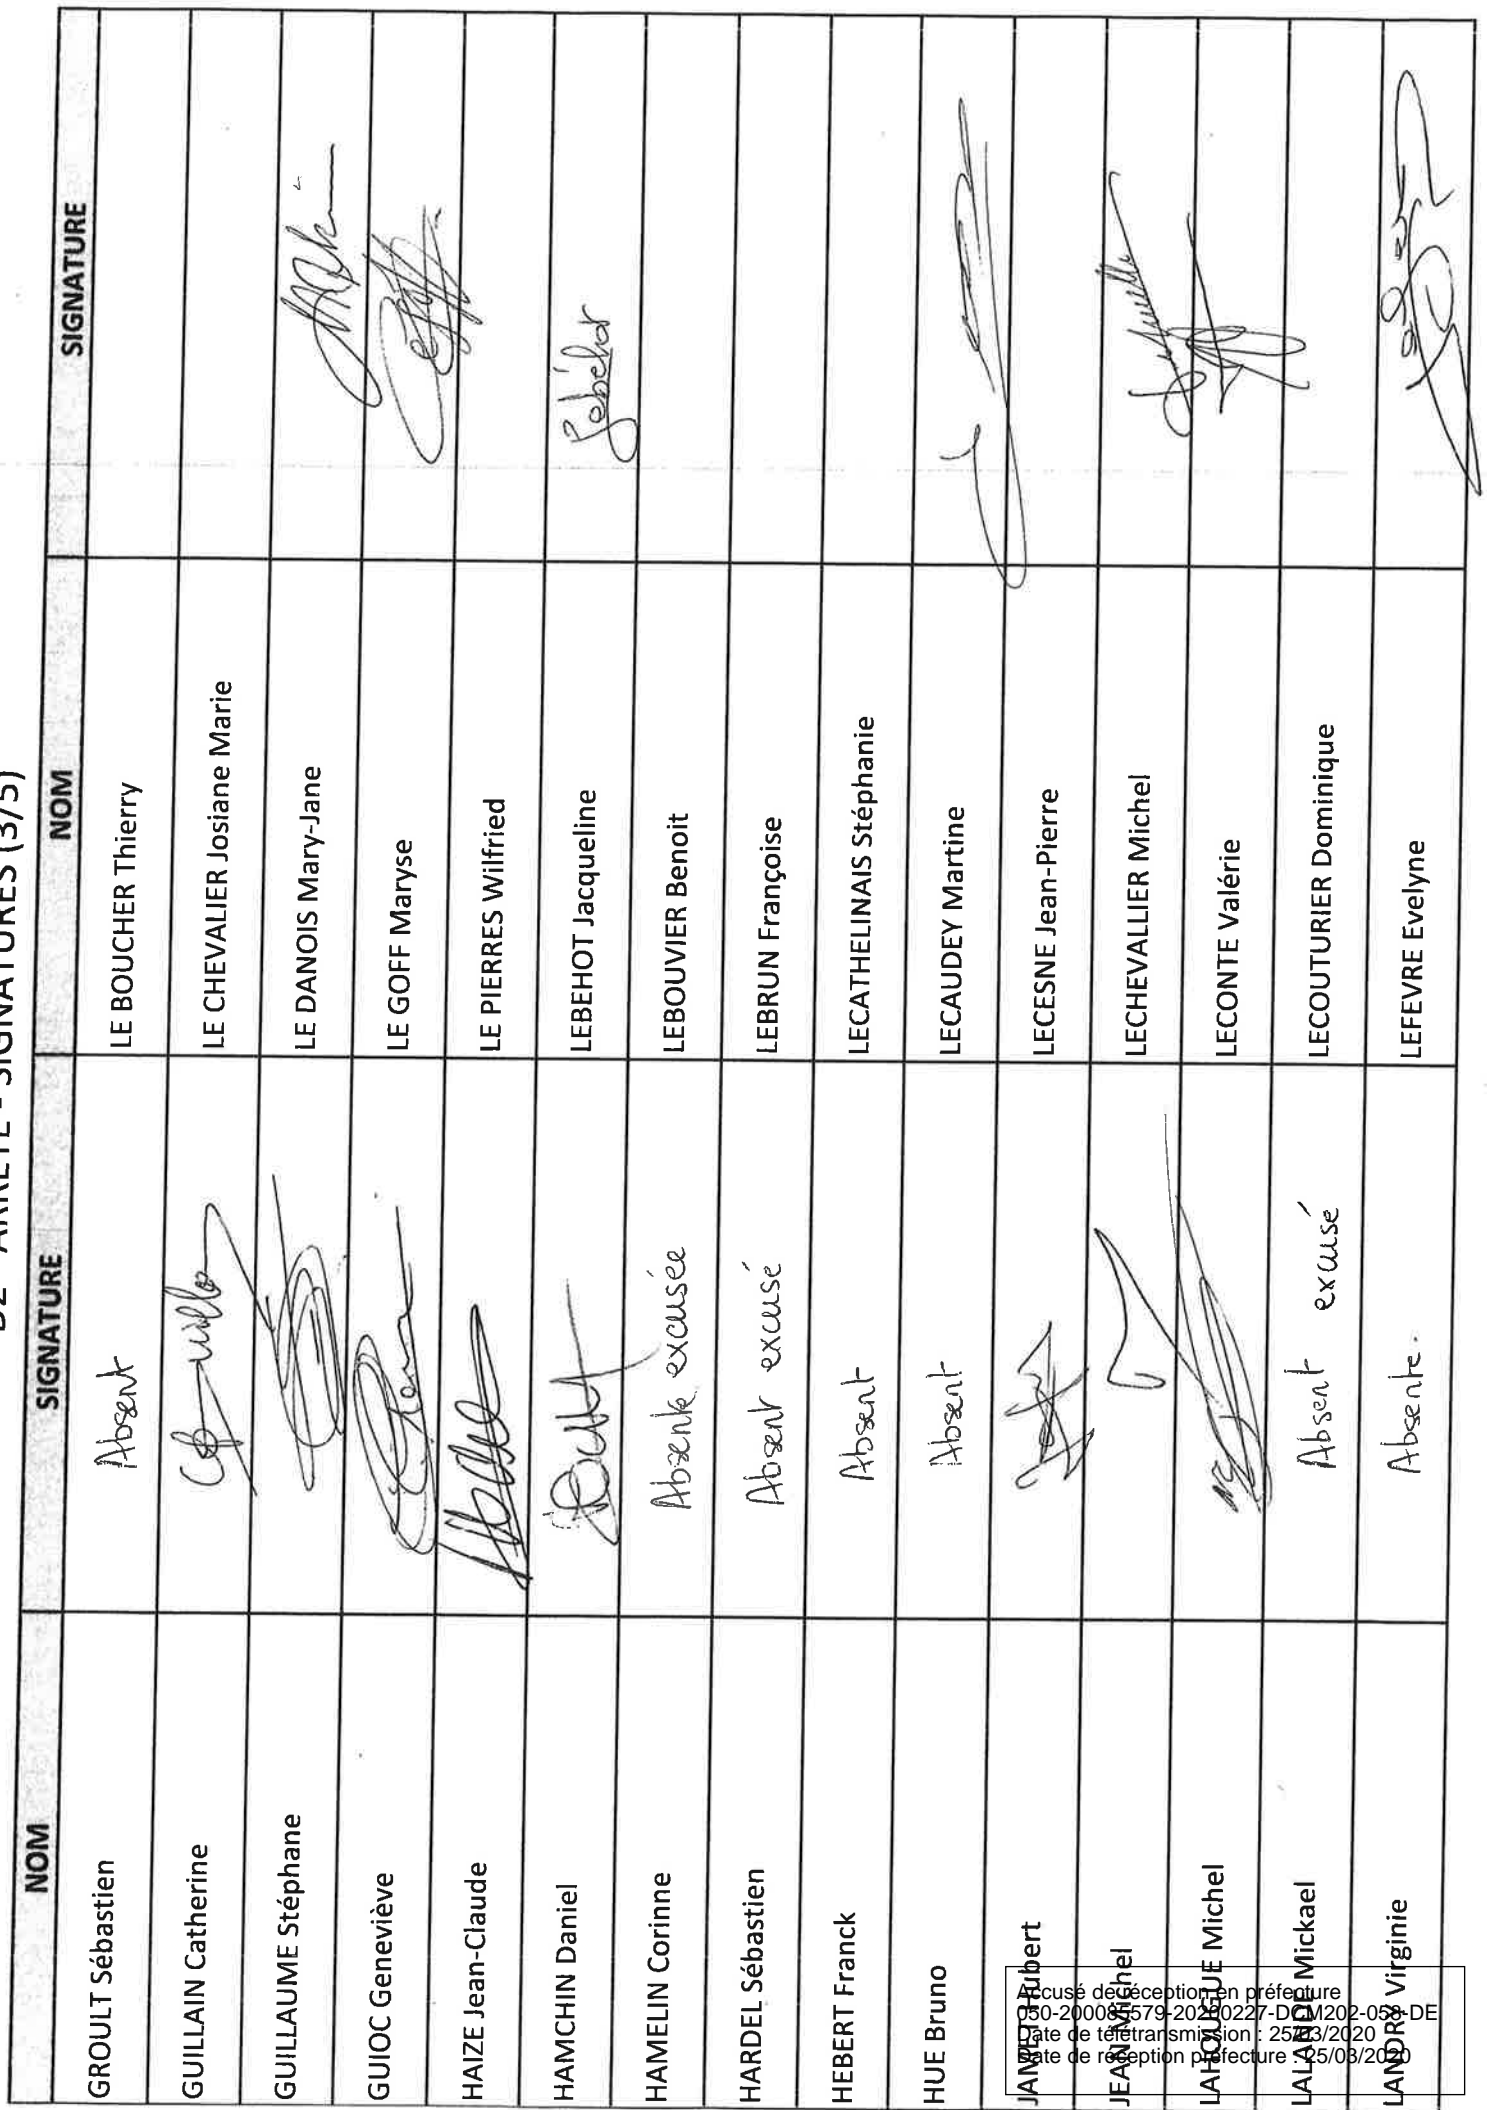 ARRETE - SIGNATURES (3/5)
NOM SIGNATURE NOM SIGNATURE
GROULT Sébastien Absent LE BOUCHER Thierry
GUILLAIN Catherine LE CHEVALIER Josiane Marie
GUILLAUME Stéphane LE DANOIS Mary-Jane
GUIOC Geneviève LE GOFF Maryse
HAIZE Jean-Claude LE PIERRES Wilfried
HAMCHIN Daniel LEBEHOT Jacqueline
HAMELIN Corinne Absente excusée LEBOUVIER Benoit
HARDEL Sébastien Absent excusé LEBRUN Françoise
HEBERT Franck Absent LECATHELINAIS Stéphanie
HUE Bruno Absent LECAUDEY Martine
JAMET Hubert LECESNE Jean-Pierre
JEAN Michel LECHEVALLIER Michel
LAHOUGUE Michel LECONTE Valérie
LALANDE Mickael Absent excusé LECOUTURIER Dominique
LANDRY Virginie Absente. LEFEVRE Evelyne
Accusé de réception en préfecture
Date de télétransmission : 25/03/2020
Date de réception préfecture : 25/03/2020